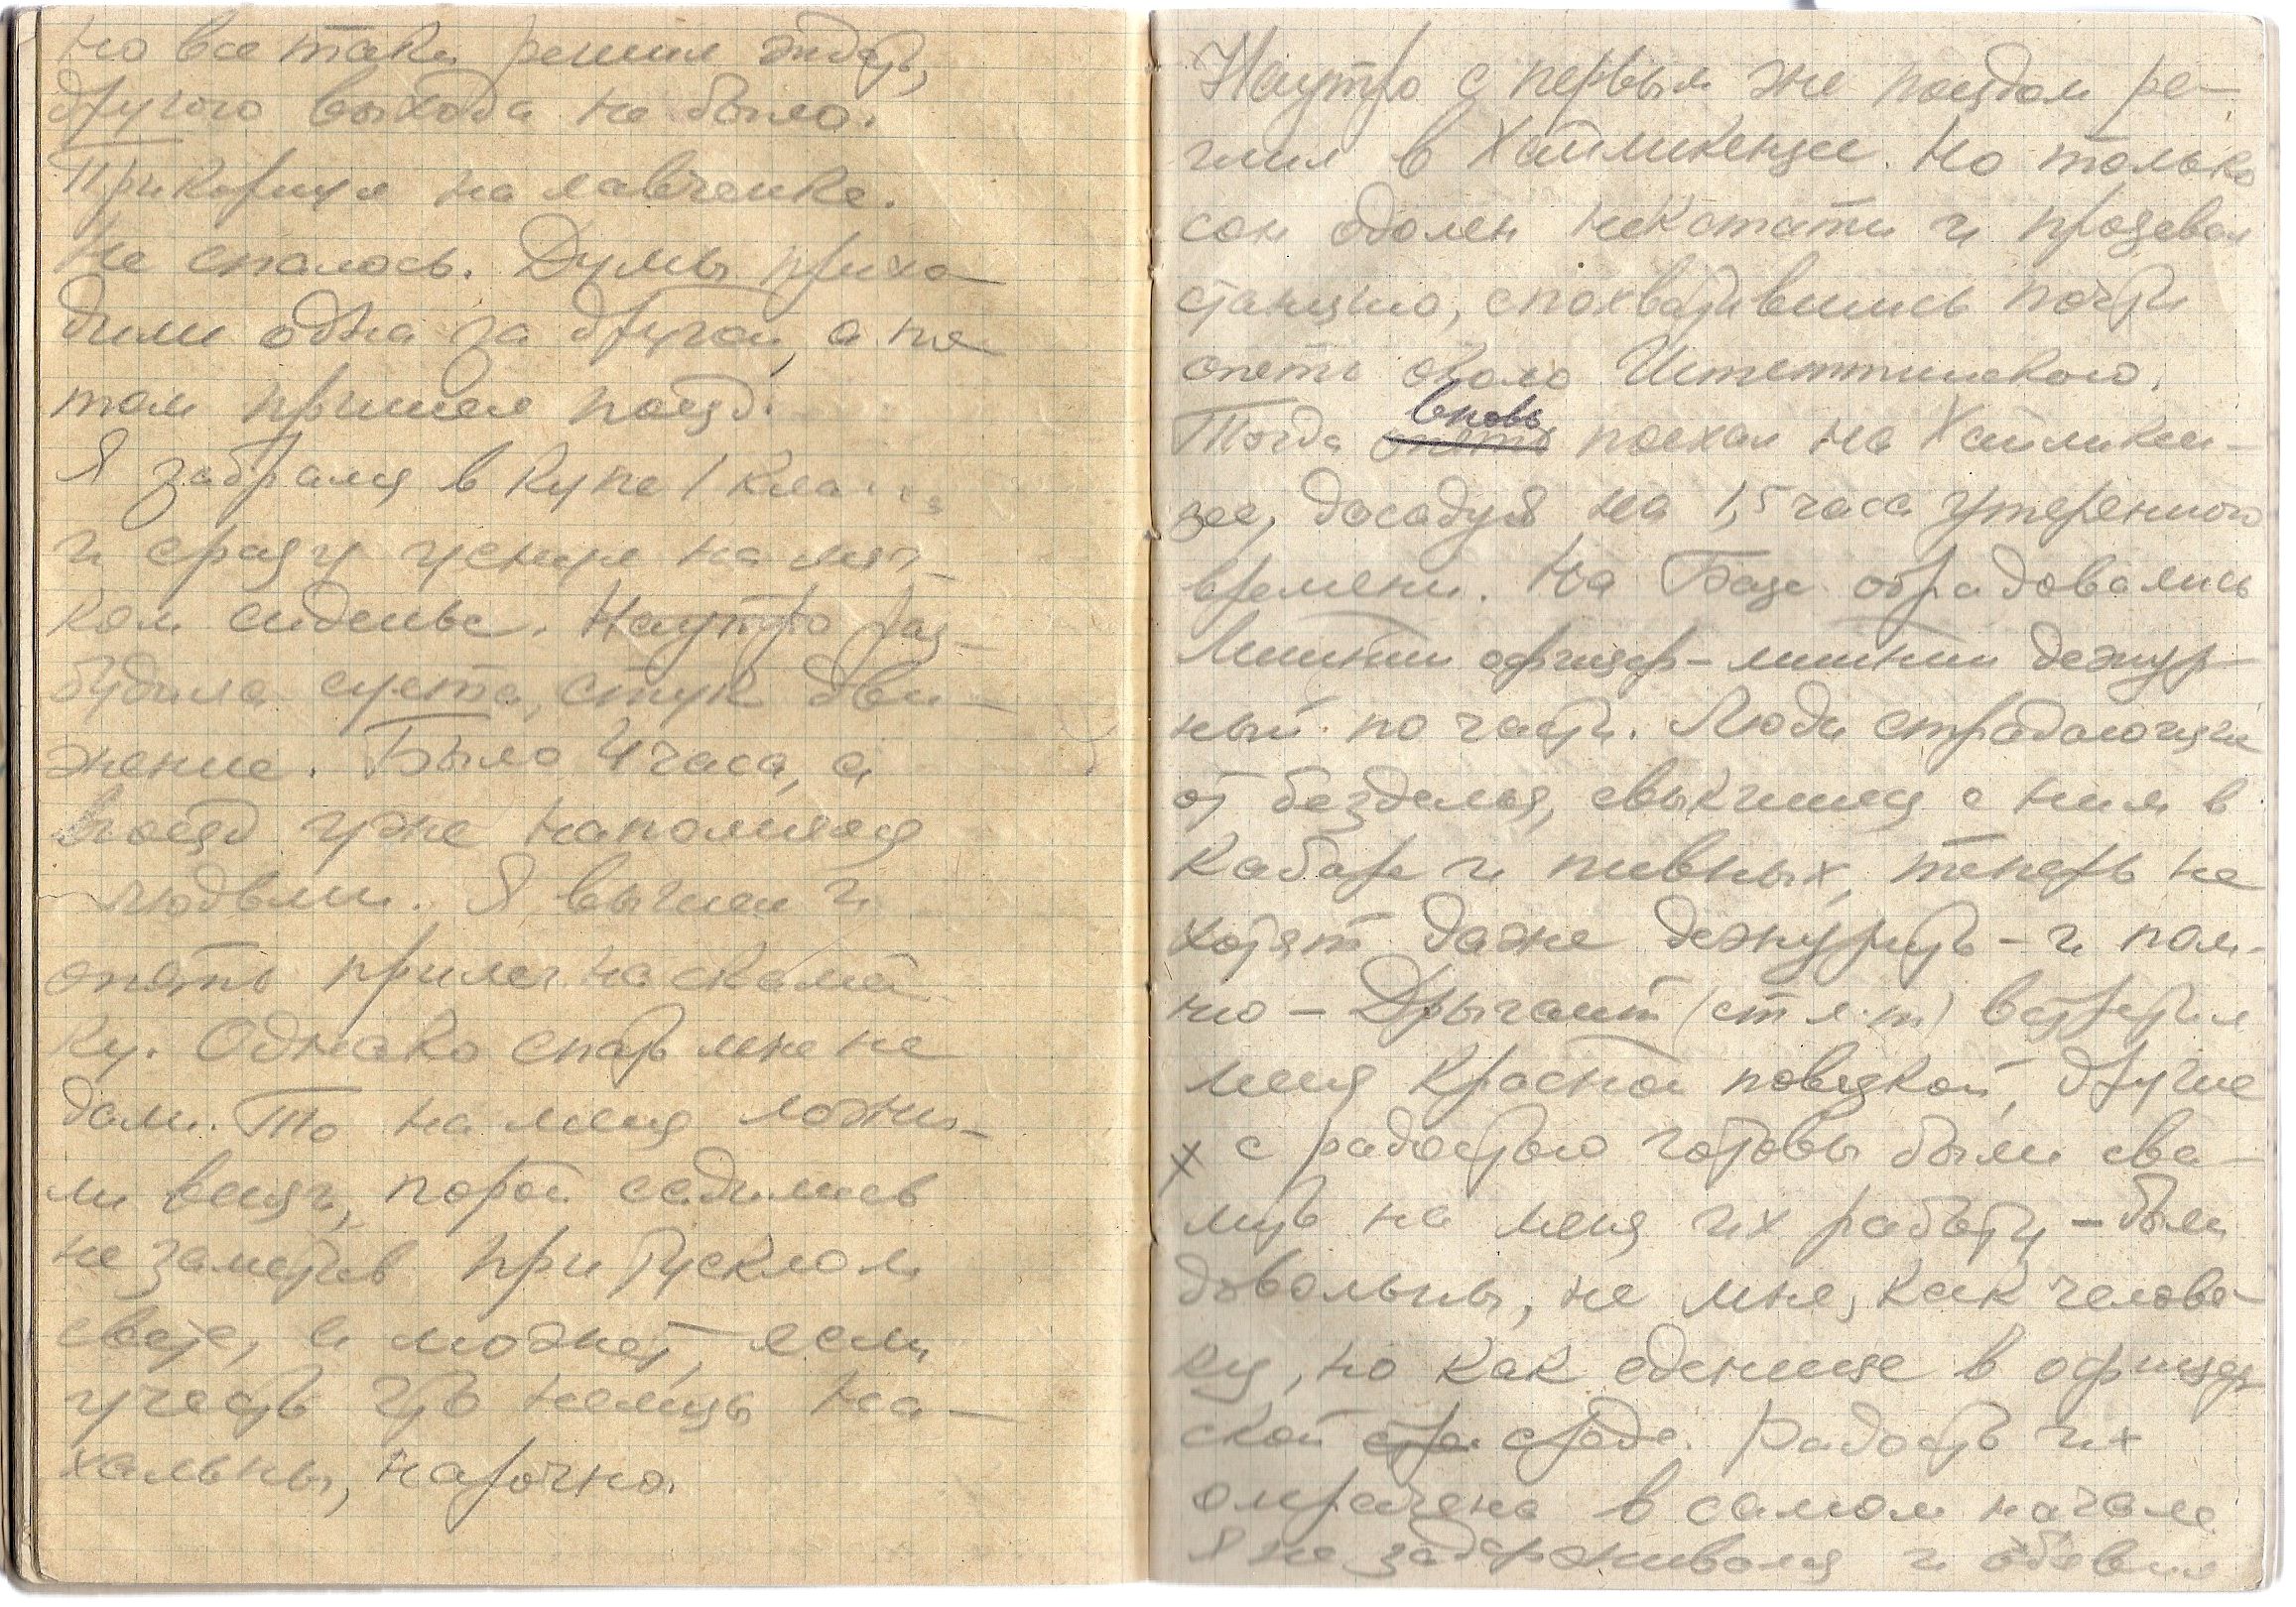 Но все таки решил ждать,
другого выхода не было.
Прикорнул на лавченке.
Не спалось. Думы прихо-
дили одна за другой, а по
том пришел поезд.
Я забрался в купе 1 кла
и сразу уснул на мяг-
ком сиденье. Наутро раз-
будила суета, стук дви-
жение. Было 4 часа, а
поезд уже наполнялся
людьми. Я вышел и
опять прилег на скамей-
ку. Однако спать мне не
дали. То на меня ложи-
ли вещи, порой садились
не заметив при тусклом
свете, а может, если
учесть что немцы на-
хальны, нарочно.
Наутро с первым же поездом ре-
шил в Хайликензее. Но только
сон одолел некстати и прозевал
станцию, спохватившись почти
опять около Штеттинского.
Тогда опять вновь поехал на Хайликен-
зее, досадуя на 1,5 часа утерянного
времени. На Базе обрадовались
Лишний офицер - лишний дежур
ный по части. Люди страдающие
от безделья, свыкшиеся с ним в
кабаре и пивных, теперь не
хотят даже дежурить - и пом-
ню - Дрыгант (ст л-т) встретил
меня красной повязкой, другие
х с радостью готовы были сва-
лить на меня их работу - были
довольны, не мне, как челове-
ку, но как единице в офицер
ской сре среде. Радость их
омрачена в самом начале
Я не задерживался и объявил